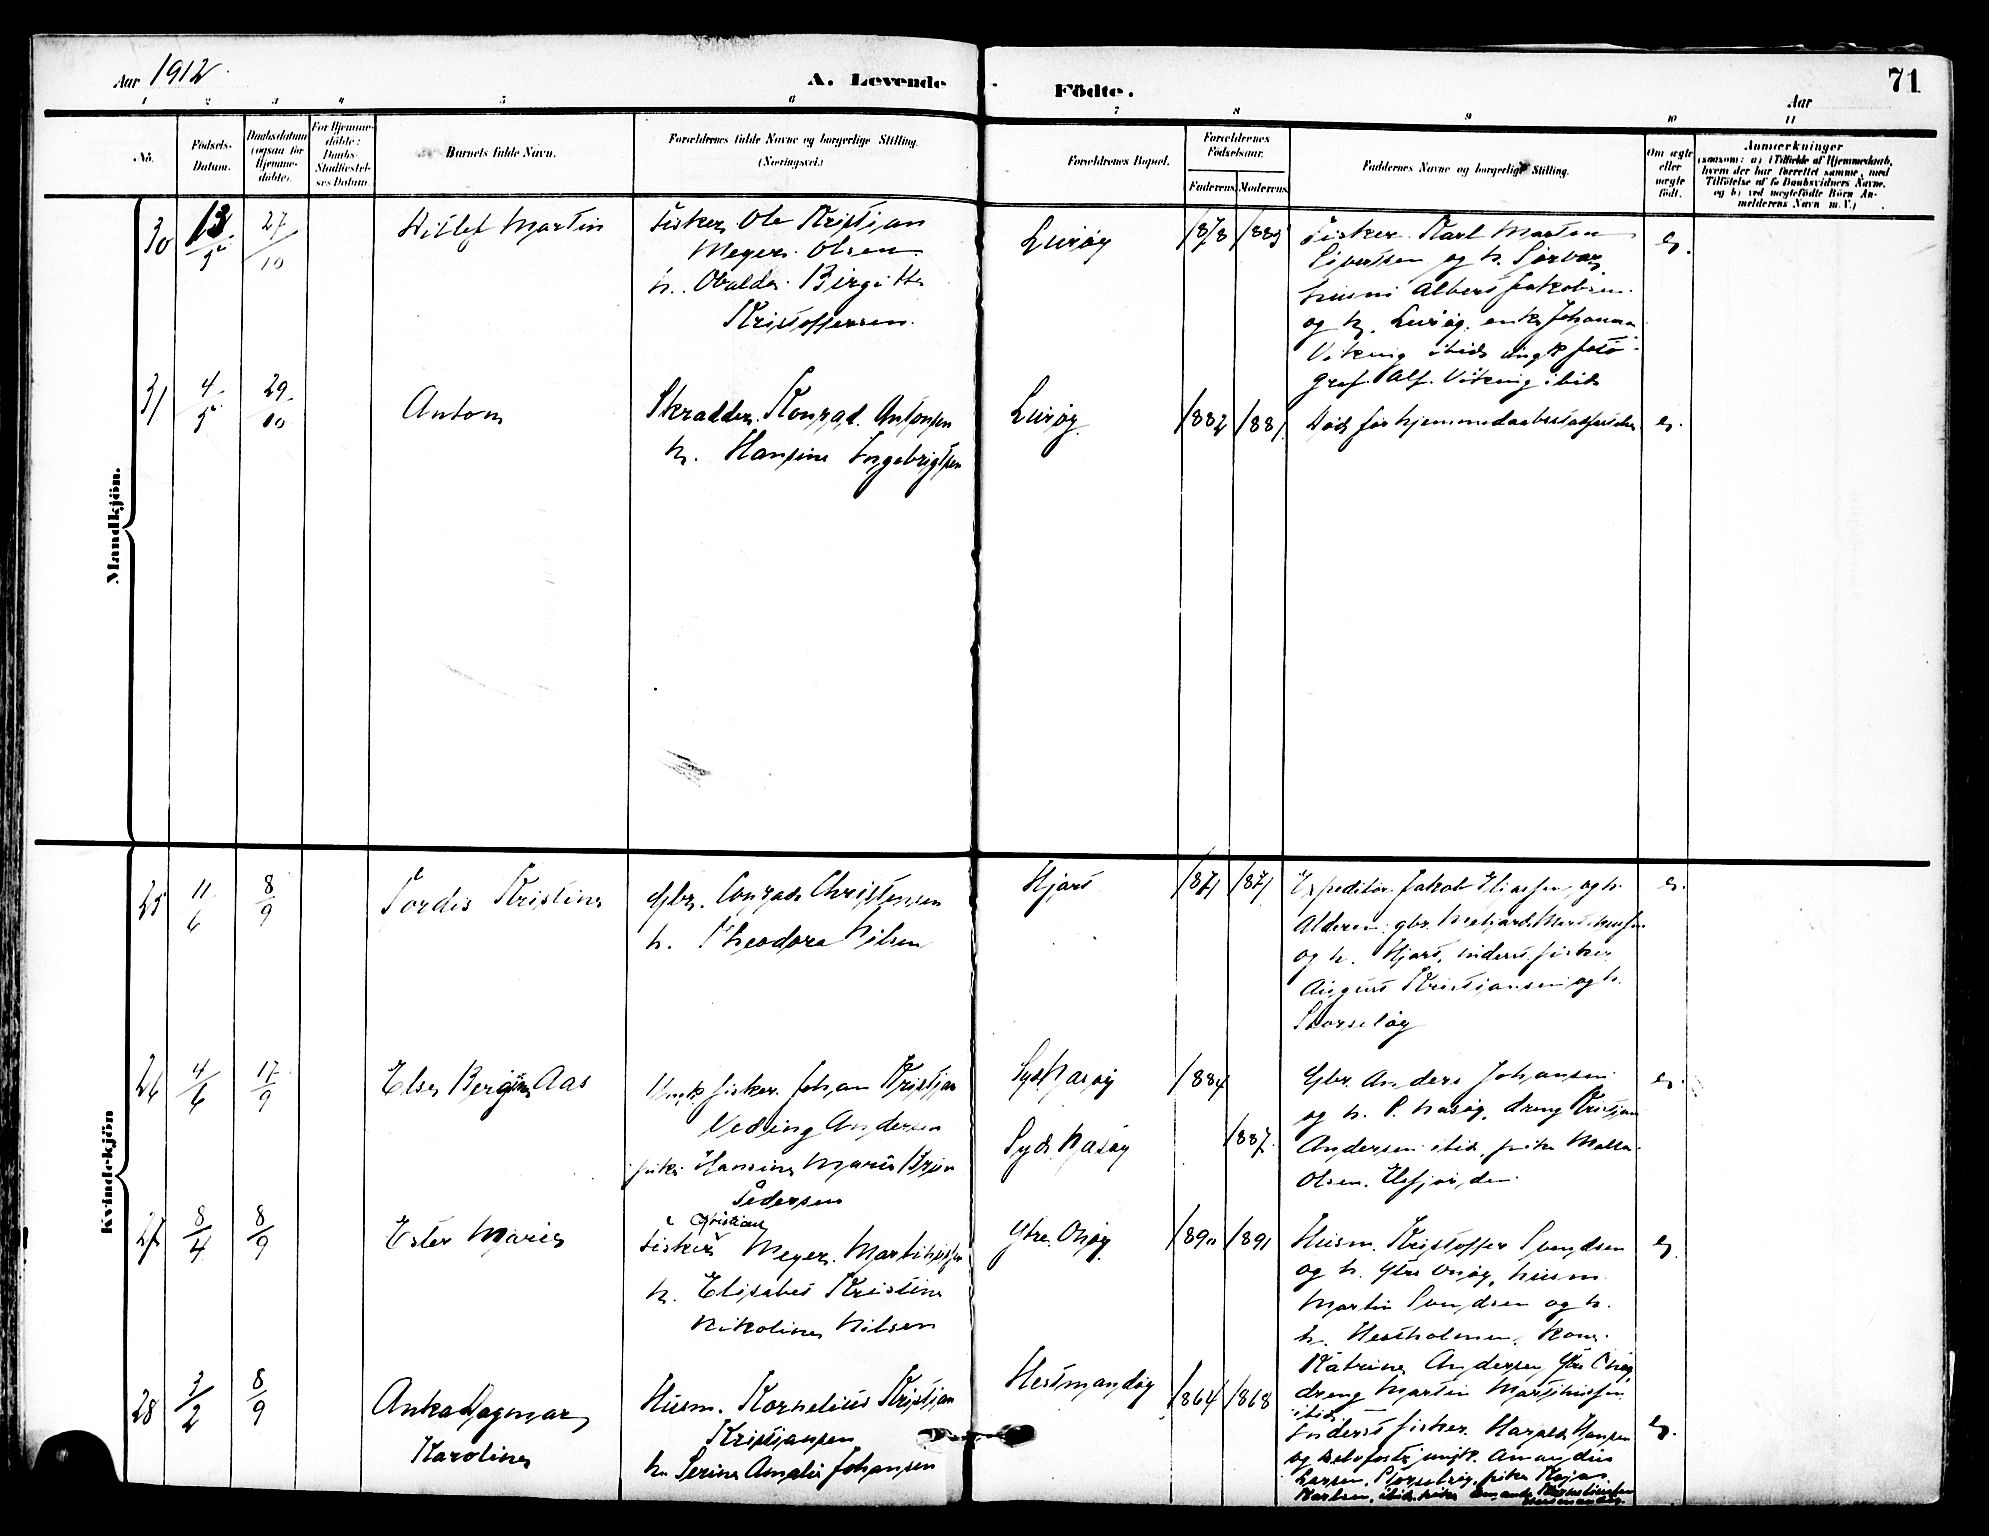 Aar 1912
A. Levende
Födte.
Aar
71
1 2 3 4 5 6 7 8 9 10 11
No.
Födsels-
Datum.
Daabsdatum
(ogsaa for
Hjemme-
döbte).
For Hjemme-
döbte:
Daabs-
Stadfæstel-
ses Datum
Barnets fulde Navn.
Forældrenes fulde Navne og borgerlige Stilling.
(Næringsvei.)
Forældrenes Bopæl.
Forældrenes
Födselsaar.
Faderens. Moderens.
Faddernes Navne og borgerlige Stilling.
Om ægte
eller
uægte
födt.
Anmærkninger
(saasom: a) i Tilfælde af Hjemmedaab,
hvem der har forrettet samme, med
Tilföielse af to Daabsvidners Navne,
og b) ved uægtefödte Börn An-
melderens Navn m. V.)
Mandkjön.
30
13/5
27/10
Ditlef Martin
Fisker Ole Kristian
Meyer Olsen
h. Birgitte
Kristoffersen
Luröy
1878
Fisker Karl Marten
Sivertsen og h.
Albert Jakobsen
og h. Luröy, enke Johanna
Viking ibid ungk foto-
graf Alf. Viking ibid
e.
31
4/5
29/10
Anton
Skrædder Konrad Antonsen
h. Hansine Ingebrigtsen
Luröy
1881
Död för hjemmedaabsstadfestelse
e.
Kvindekjön
25
11/6
8/9
Tordis Kristine
Gbr. Conrad Christensen
h. Theodora Nilsen
Hjart
1871 1871
Expeditör Jakob Eliassen og h.
Alderen, gbr.
og h. Hjart, inderst fisker
August Kristiansen og h.
Storselöy
e.
26
4/6
17/9
Else Bergine Aas
Ungk. fisker Johan Kristian
Veding Andersen
pike Hansine Marie
Pedersen
Syd. Nasöy
Syd. Nasöy
1884
1887
Gbr. Anders Johansen
og h. S. Nasöy, dreng Kristian
Andersen ibid, pike
Olsen,
e.
27
8/4
8/9
Ester Marie
Christian
Fisker Meyer Martinussen
h. Elisabet Kristine
Nikoline Nilsen
Ytre Onöy
1890 1891
Husm. Kristoffer Svendsen
og h. Ytre Onöy, husm.
Martin Svendsen og h.
h. Hestholmen, kone
Katrine Andersen, Ytre Onöy
dreng Martin Martinussen
ibid.
e.
28
3/2
8/9
Anka Dagmar
Karoline
Husm. Kornelius Kristian
Kristiansen
h. Serine Amalie Johansen
Hestmandöy
1864 1868
Inderst fisker Harald Hansen
og ungk. Amandus
Larsen, Storselöy, pike Kaja
Karlsen, ibid, pike Amanda Korneliussen
Hestmandöy
e.